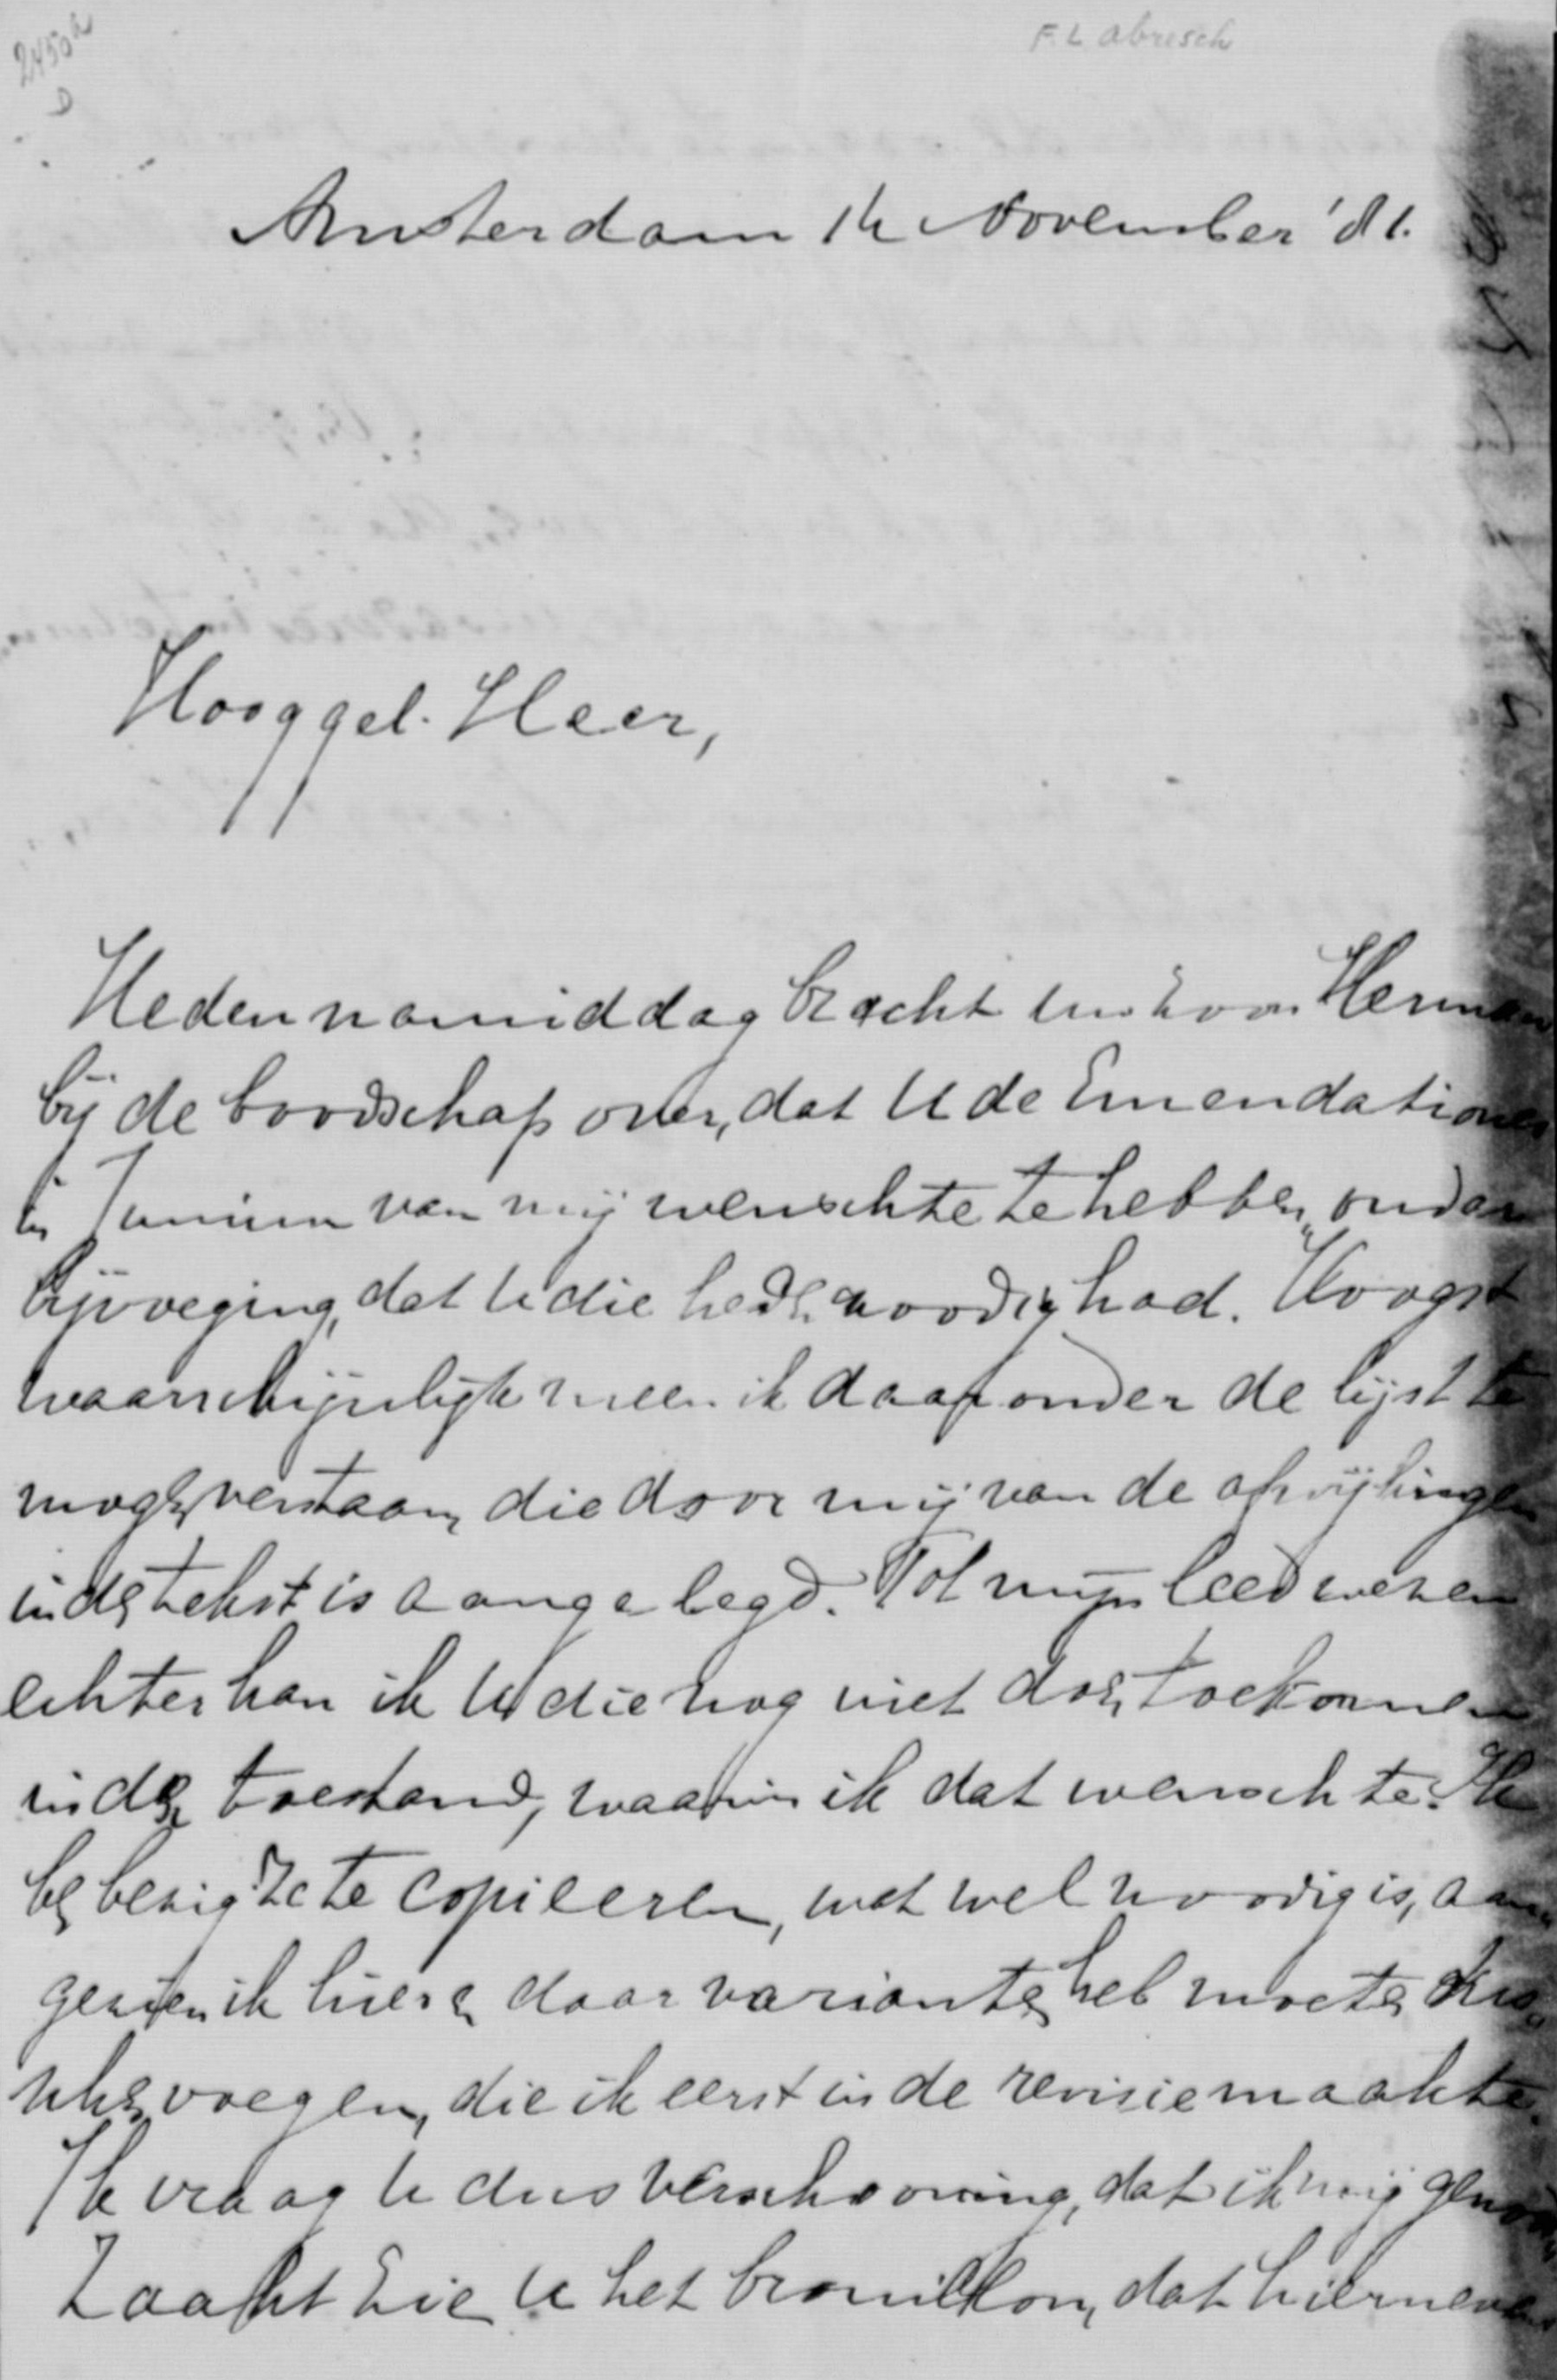 2450
D
F. L Abresch
Amsterdam 14 November '81.
Hooggel. Heer,
Heden namiddag bracht Uw zoon Herman
bij de boodschap over, dat U de Emendationes
in Junium van mij wenschte te hebben, onder
bijvoeging, dat U die heden noodig had. Hoogst
waarschijnlijk meen ik daaronder de lijst te
mogen verstaan, die door mij van de afwijkingen
in den tekst is aangelegd. Tot mijn leedwezen
echter kan ik U die nog niet doen toekomen
in den toestand, waarin ik dat wenschte. Ik
ben bezig ze te copieeren, wat wel noodig is, aan
gezien ik hier en daar varianten heb moeten
voegen, die ik eerst in de revisie maakte.
Ik vraag U dus verschooning, dat ik mij
zie U het brouillon, dat hiernevens